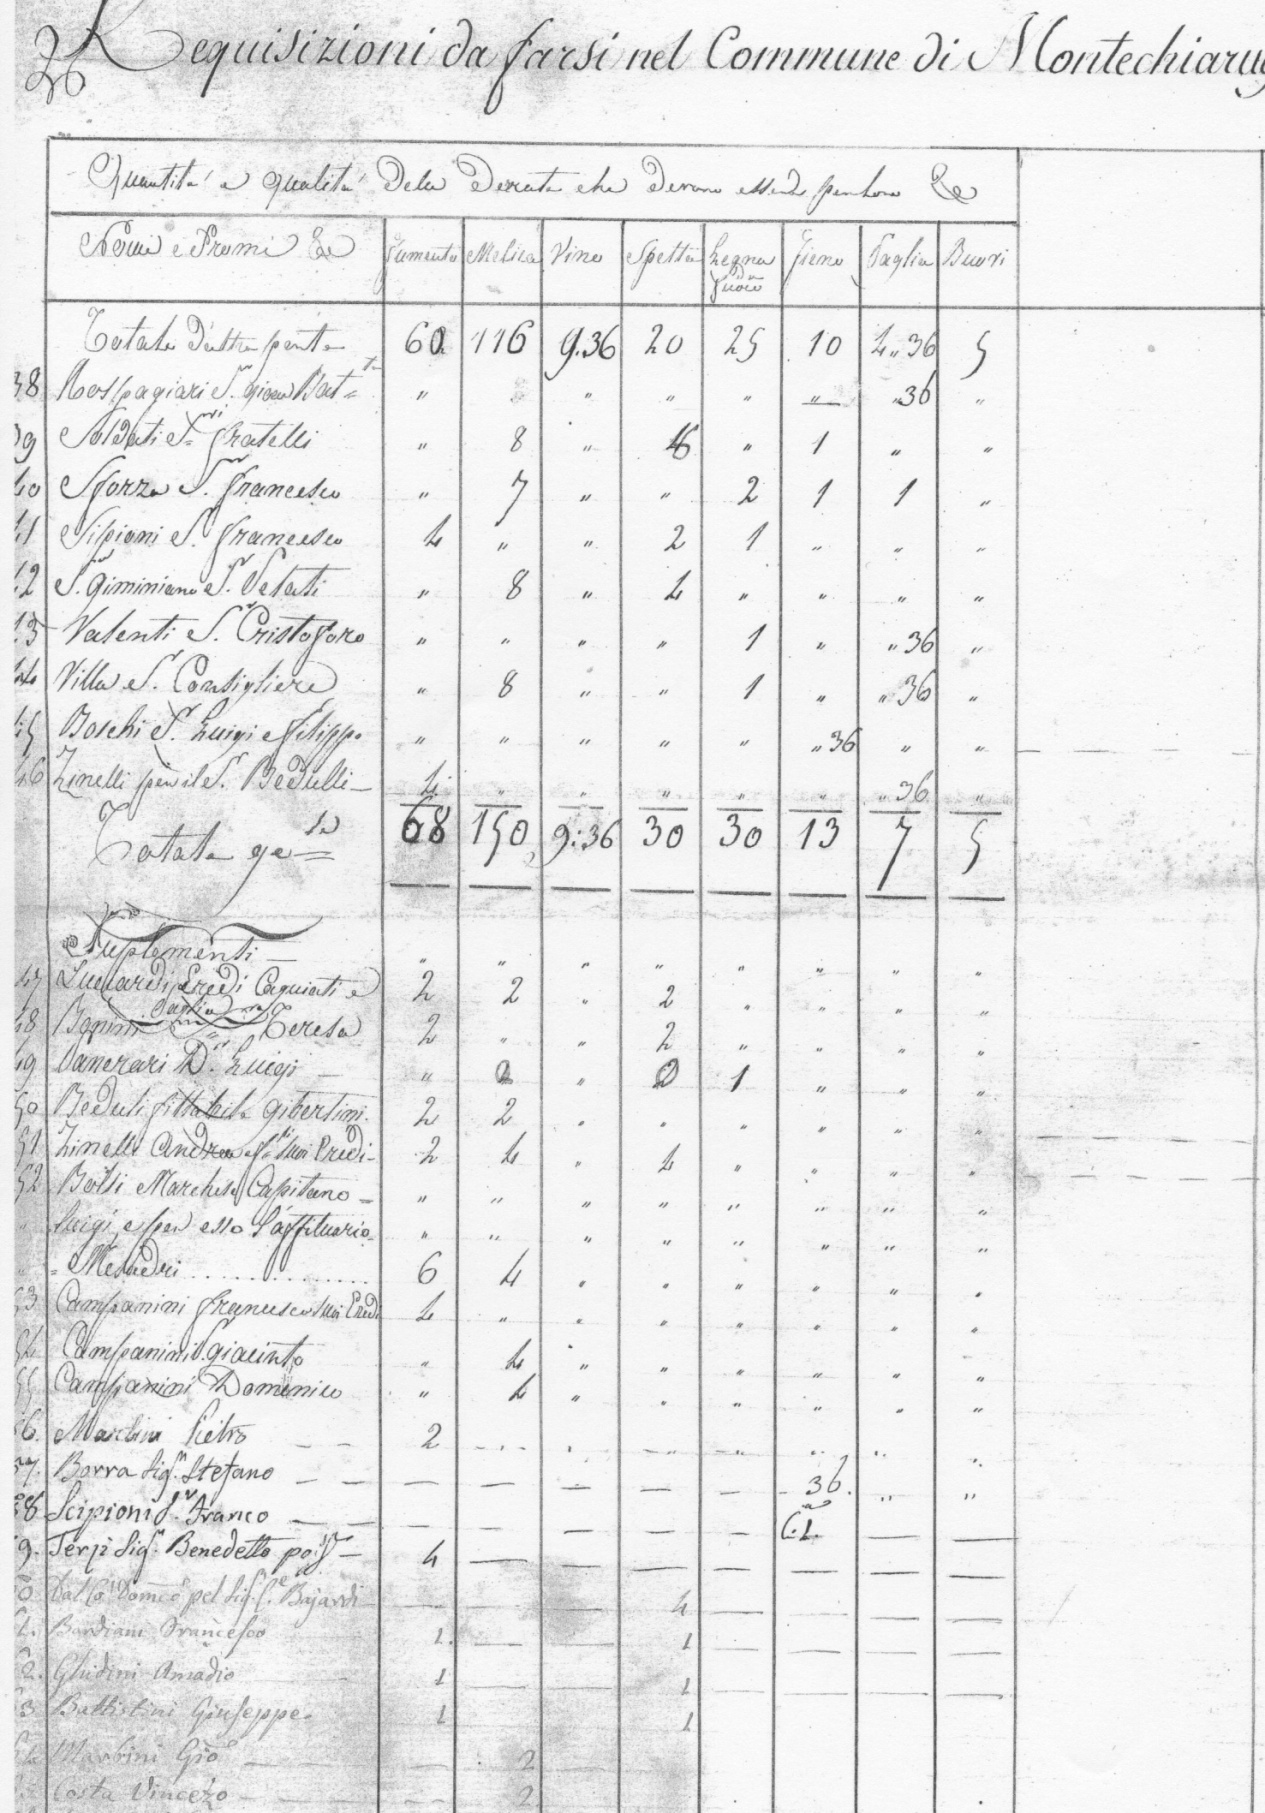 Requisizioni da farsi nel Commune di Montechiarug
Quantità e qualità Dela Derrata che devono essere
Nomi e Pnomi &c Fumento Melica Vino Spelta Legna da fuoco Fieno Paglia Buovi
Totale d'altra parte 60 116 9.36 20 25 10 4 „ 36 5
38 Rospagiari Sr. Giovn Bat=ta „ „ „ „ „ „ 36 „
39 Soldati Sri fratelli „ 8 „ 4 „ 1 „ „
40 Sforza Sr. francesco „ 7 „ „ 2 1 1 „
41 Sipioni Sr. francesco 4 „ „ 2 1 „ „ „
42 S. Giminiano Sr. Vetati „ 8 „ 4 „ „ „ „
43 Valenti Sr. Cristoforo „ „ „ „ 1 „ „ 36 „
44 Villa Sr. Consigliere „ 8 „ „ 1 „ „ 36 „
45 Boschi Sr. Luigi e filippo „ „ „ „ „ „ 36 „ „
46 Zinelli per il Sr. Bedulli 4 „ „ „ „ „ „ 36 „
Totale ge=le 68 150 9:36 30 30 13 7 5
Suplementi „ „ „ „ „ „ „ „
47 Lucardi Eredi Caguiati e 2 2 „ 2 „ „ „ „
Paglia
48 Bonini Teresa 2 „ „ 2 „ „ „ „
49 Panerari Dr. Luigi „ 2 „ 2 1 „ „ „
50 Beduli fittabile Gibertini. 2 2 „ „ „ „ „ „
51 Zinelli Andrea suoi Eredi 2 4 „ 4 „ „ „ „
52 Botti Marchese Capitano = „ „ „ „ „ „ „ „
„ Luigi, e per esso l'affituario „ „ „ „ „ „ „ „
„ = Mesadri .............. 6 4 „ „ „ „ „ „
53 Campanini francesco suoi Eredi 4 „ „ „ „ „ „ „
54 Campanini S. Giacinto „ 4 „ „ „ „ „ „
55 Campanini Domenico „ 4 „ „ „ „ „ „
56. Marbini Pietro 2 „ „ „ „ „ „ „
57. Borra Sigr. Stefano — — — — — — 36. „ „
58 Scipioni Sr. Franco — — — — — — C. 1. — —
59. Terzi Sigr. Benedetto 4 — — — — — — —
60 Dal Co' Domco pel Sig. Ce. Bajardi — — — 4 — — — —
61. Bardiani Francesco 1. — — 1 — — — —
62. Ghidini Amadio 1 — — 1 — — — —
63 Battistini Giuseppe 1 1
64 Marbini Gio 2
65 Costa Vincezo 2